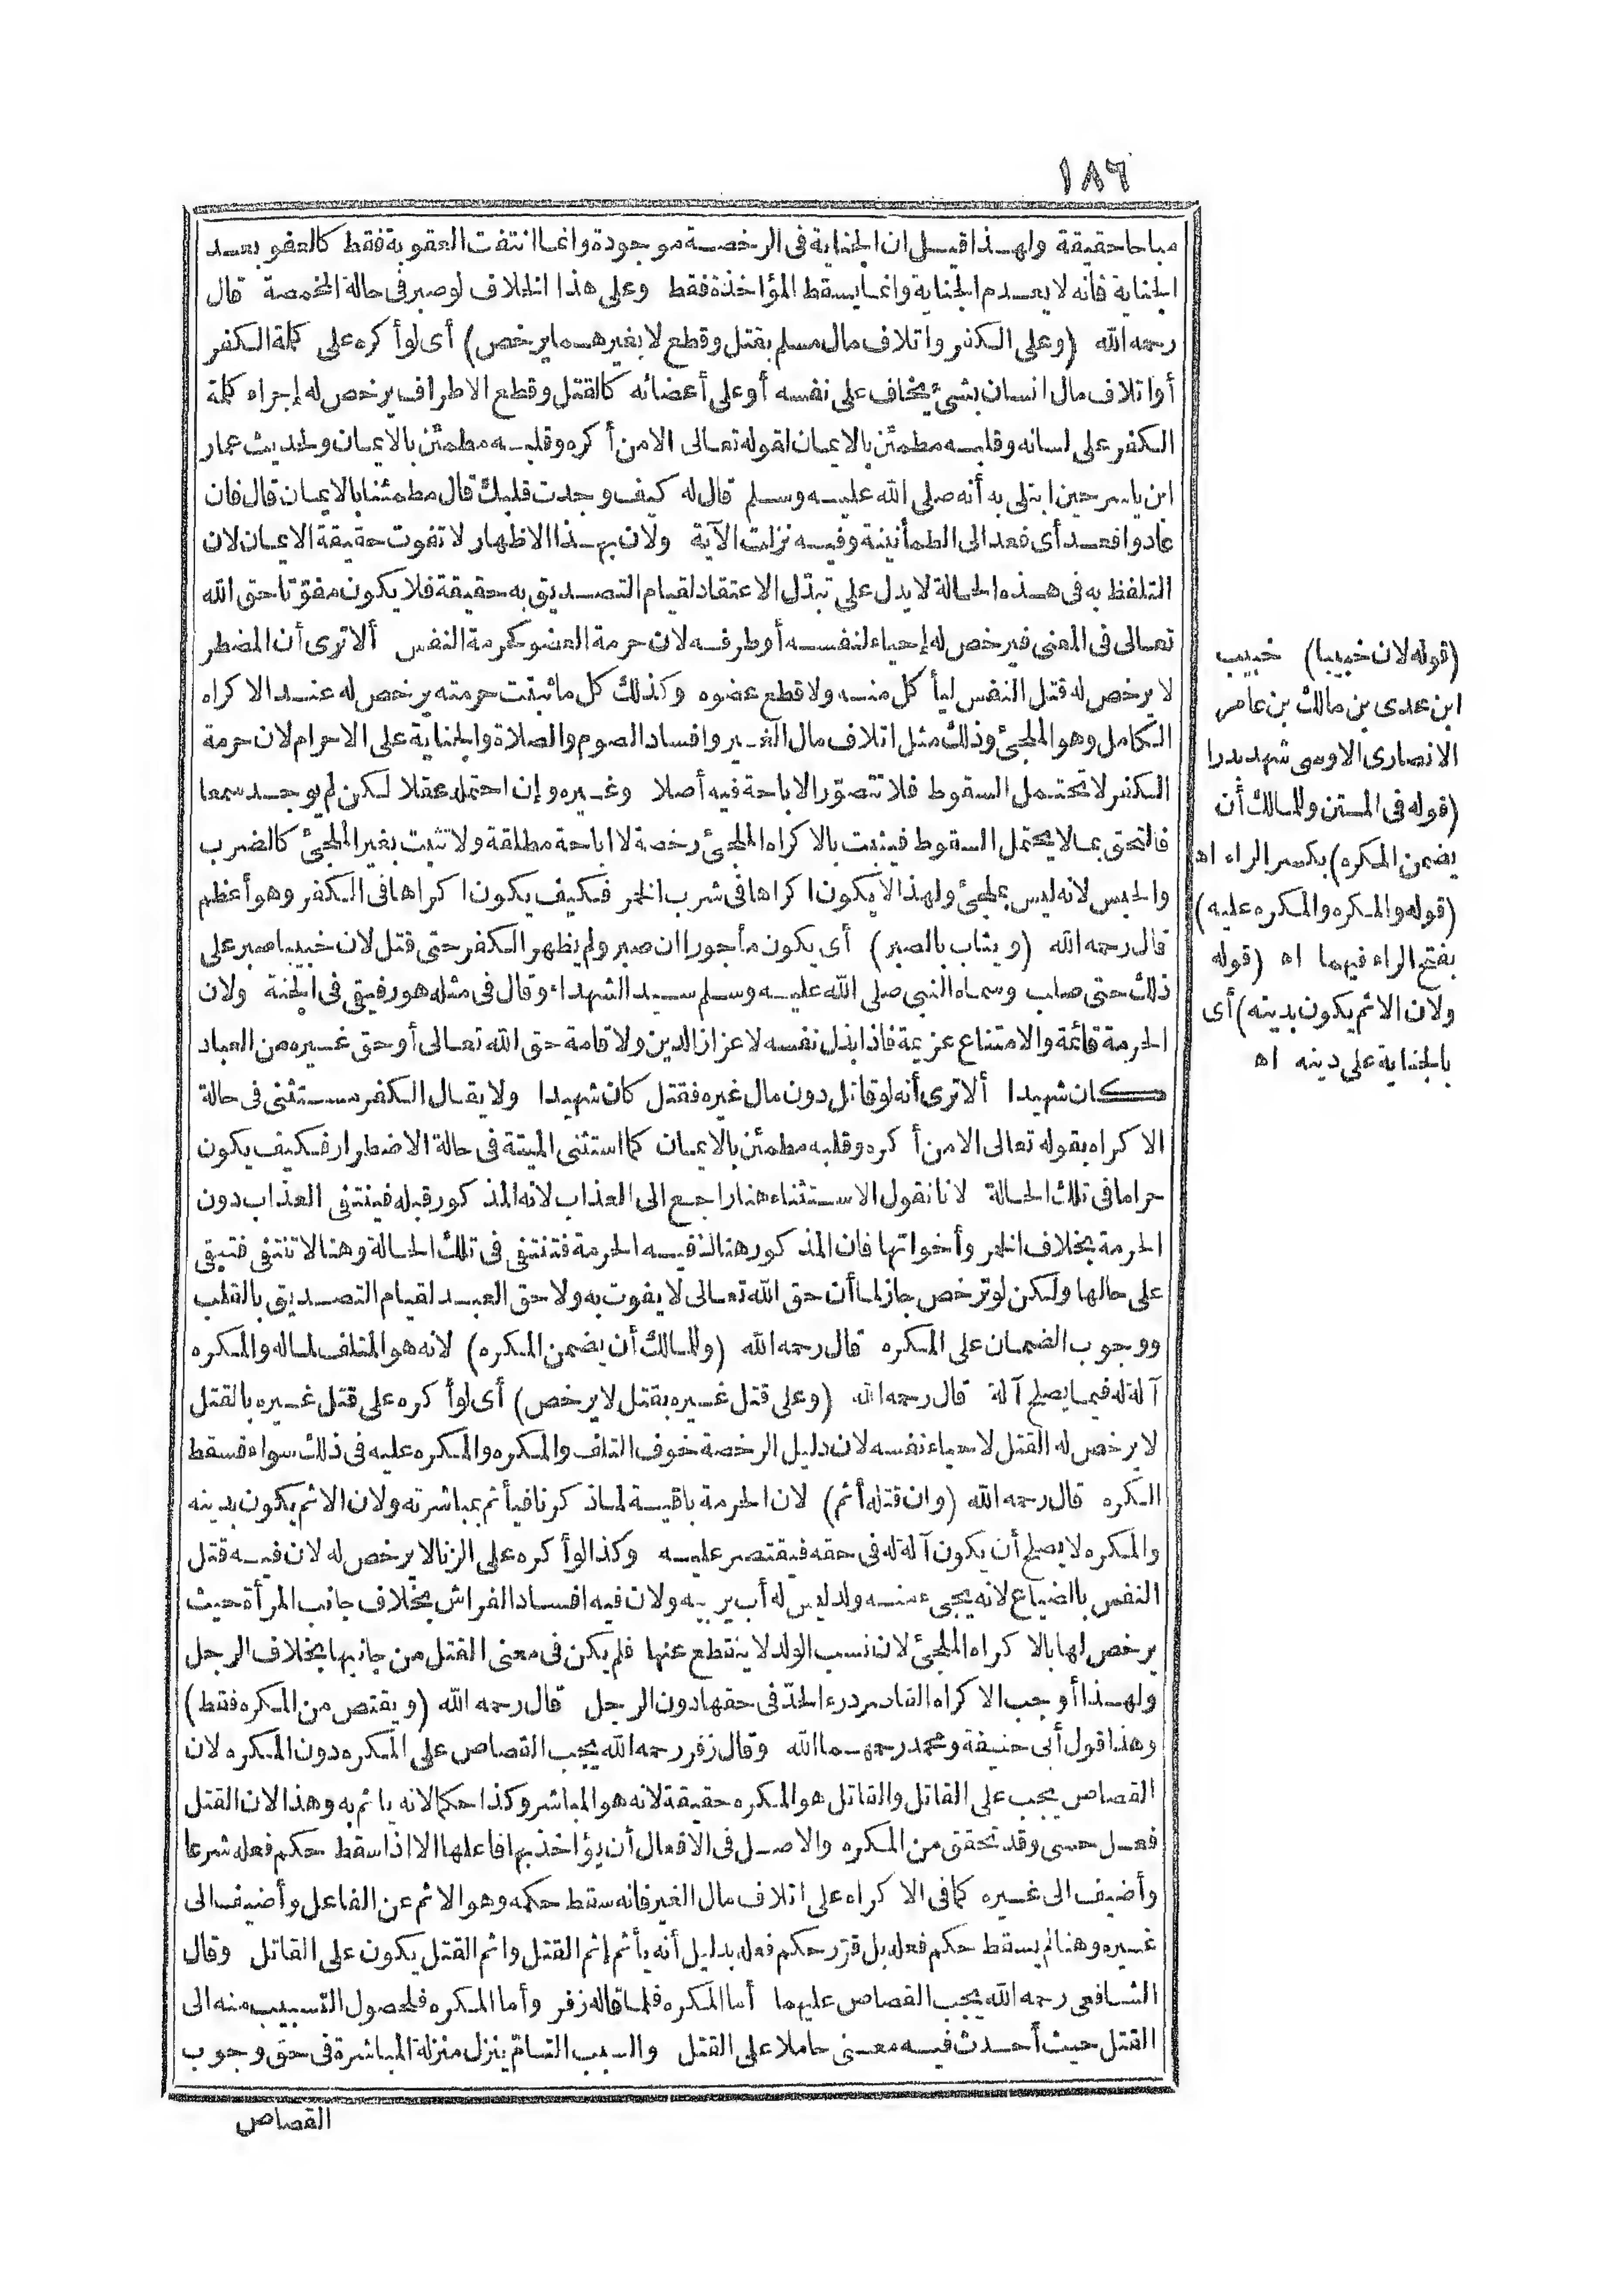 ١٨٦
مباحا حقيقة ولهذا قيل ان الجناية فى الرخصة موجودة وانما انتفت العقوبة فقط كالعفو بعد
الجناية فانه لا يعدم الجناية وانما يسقط المؤاخذة فقط وعلى هذا الخلاف لو صبر فى حالة المخمصة قال
رحمه الله (وعلى الكفر واتلاف مال مسلم بقتل وقطع لا بغيرهما يرخص) أى لو أكره على كلمة الكفر
أو اتلاف مال انسان بشئ يخاف على نفسه أو على أعضائه كالقتل وقطع الاطراف يرخص له إجراء كلمة
الكفر على لسانه وقلبه مطمئن بالايمان لقوله تعالى الا من أكره وقلبه مطمئن بالايمان ولحديث عمار
ابن ياسر حين ابتلى به أنه صلى الله عليه وسلم قال له كيف وجدت قلبك قال مطمئنا بالايمان قال فان
عادوا فعد أى فعد الى الطمأنينة وفيه نزلت الآية ولان بهذا الاظهار لا تفوت حقيقة الايمان لان
التلفظ به فى هذه الحالة لا يدل على تبدّل الاعتقاد لقيام التصديق به حقيقة فلا يكون مفوّتا حق الله
تعالى فى المعنى فيرخص له إحياء لنفسه أو طرفه لان حرمة العضو كحرمة النفس ألا ترى أن المضطر
لا يرخص له قتل النفس ليأكل منه ولا قطع عضوه وكذلك كل ما ثبتت حرمته يرخص له عند الاكراه
الكامل وهو الملجئ وذلك مثل اتلاف مال الغير وافساد الصوم والصلاة والجناية على الاحرام لان حرمة
الكفر لا تحتمل السقوط فلا تتصوّر الاباحة فيه أصلا وغيره وإن احتمله عقلا لكن لم يوجد سمعا
فالتحق بما لا يحتمل السقوط فيثبت بالاكراه الملجئ رخصة لا اباحة مطلقة ولا تثبت بغير الملجئ كالضرب
والحبس لانه ليس بملجئ ولهذا لا يكون اكراها فى شرب الخمر فكيف يكون اكراها فى الكفر وهو أعظم
قال رحمه الله (ويثاب بالصبر) أى يكون مأجورا ان صبر ولم يظهر الكفر حتى قتل لان خبيبا صبر على
ذلك حتى صلب وسماه النبى صلى الله عليه وسلم سيد الشهداء وقال فى مثله هو رفيقى فى الجنة ولان
الحرمة قائمة والامتناع عزيمة فاذا بذل نفسه لاعزاز الدين ولاقامة حق الله تعالى أو حق غيره من العباد
كان شهيدا ألا ترى أنه لو قاتل دون مال غيره فقتل كان شهيدا ولا يقال الكفر مستثنى فى حالة
الاكراه بقوله تعالى الا من أكره وقلبه مطمئن بالايمان كما استثنى الميتة فى حالة الاضطرار فكيف يكون
حراما فى تلك الحالة لانا نقول الاستثناء هنا راجع الى العذاب لانه المذكور قبله فينتفى العذاب دون
الحرمة بخلاف الخمر وأخواتها فان المذكور هنالك فيه الحرمة فتنتفى فى تلك الحالة وهنا لا تنتفى فتبقى
على حالها ولكن لو ترخص جاز لما أن حق الله تعالى لا يفوت به ولا حق العبد لقيام التصديق بالقلب
ووجوب الضمان على المكره قال رحمه الله (وللمالك أن يضمن المكره) لانه هو المتلف لماله والمكره
آلة له فيما يصلح آلة قال رحمه الله (وعلى قتل غيره بقتل لا يرخص) أى لو أكره على قتل غيره بالقتل
لا يرخص له القتل لاحياء نفسه لان دليل الرخصة خوف التلف والمكره والمكره عليه فى ذلك سواء فسقط
الكره قال رحمه الله (وان قتله أثم) لان الحرمة باقية لما ذكرنا فيأثم بمباشرته ولان الاثم يكون بدينه
والمكره لا يصلح أن يكون آلة له فى حقه فيقتصر عليه وكذا لو أكره على الزنا لا يرخص له لان فيه قتل
النفس بالضياع لانه يجىء منه ولد ليس له أب يربيه ولان فيه افساد الفراش بخلاف جانب المرأة حيث
يرخص لها بالاكراه الملجئ لان نسب الولد لا ينقطع عنها فلم يكن فى معنى القتل من جانبها بخلاف الرجل
ولهذا أوجب الاكراه القاصر درء الحدّ فى حقها دون الرجل قال رحمه الله (ويقتص من المكره فقط)
وهذا قول أبى حنيفة ومحمد رحمهما الله وقال زفر رحمه الله يجب القصاص على المكره دون المكره لان
القصاص يجب على القاتل والقاتل هو المكره حقيقة لانه هو المباشر وكذا حكما لانه يأثم به وهذا لان القتل
فعل حسى وقد تحقق من المكره والاصل فى الافعال أن يؤاخذ بها فاعلها الا اذا سقط حكم فعله شرعا
وأضيف الى غيره كما فى الاكراه على اتلاف مال الغير فانه سقط حكمه وهو الاثم عن الفاعل وأضيف الى
غيره وهنا لم يسقط حكم فعله بل قرّر حكم فعله بدليل أنه يأثم إثم القتل واثم القتل يكون على القاتل وقال
الشافعى رحمه الله يجب القصاص عليهما أما المكره فلما قاله زفر وأما المكره فلحصول التسبيب منه الى
القتل حيث أحدث فيه معنى حاملا على القتل والسبب التامّ ينزل منزلة المباشرة فى حق وجوب
القصاص
(قوله لان خبيبا) خبيب
ابن عدى بن مالك بن عامر
الانصارى الاوسى شهد بدرا
(قوله فى المتن وللمالك أن
يضمن المكره) بكسر الراء اه
(قوله والمكره والمكره عليه)
بفتح الراء فيهما اه (قوله
ولان الاثم يكون بدينه) أى
بالجناية على دينه اه